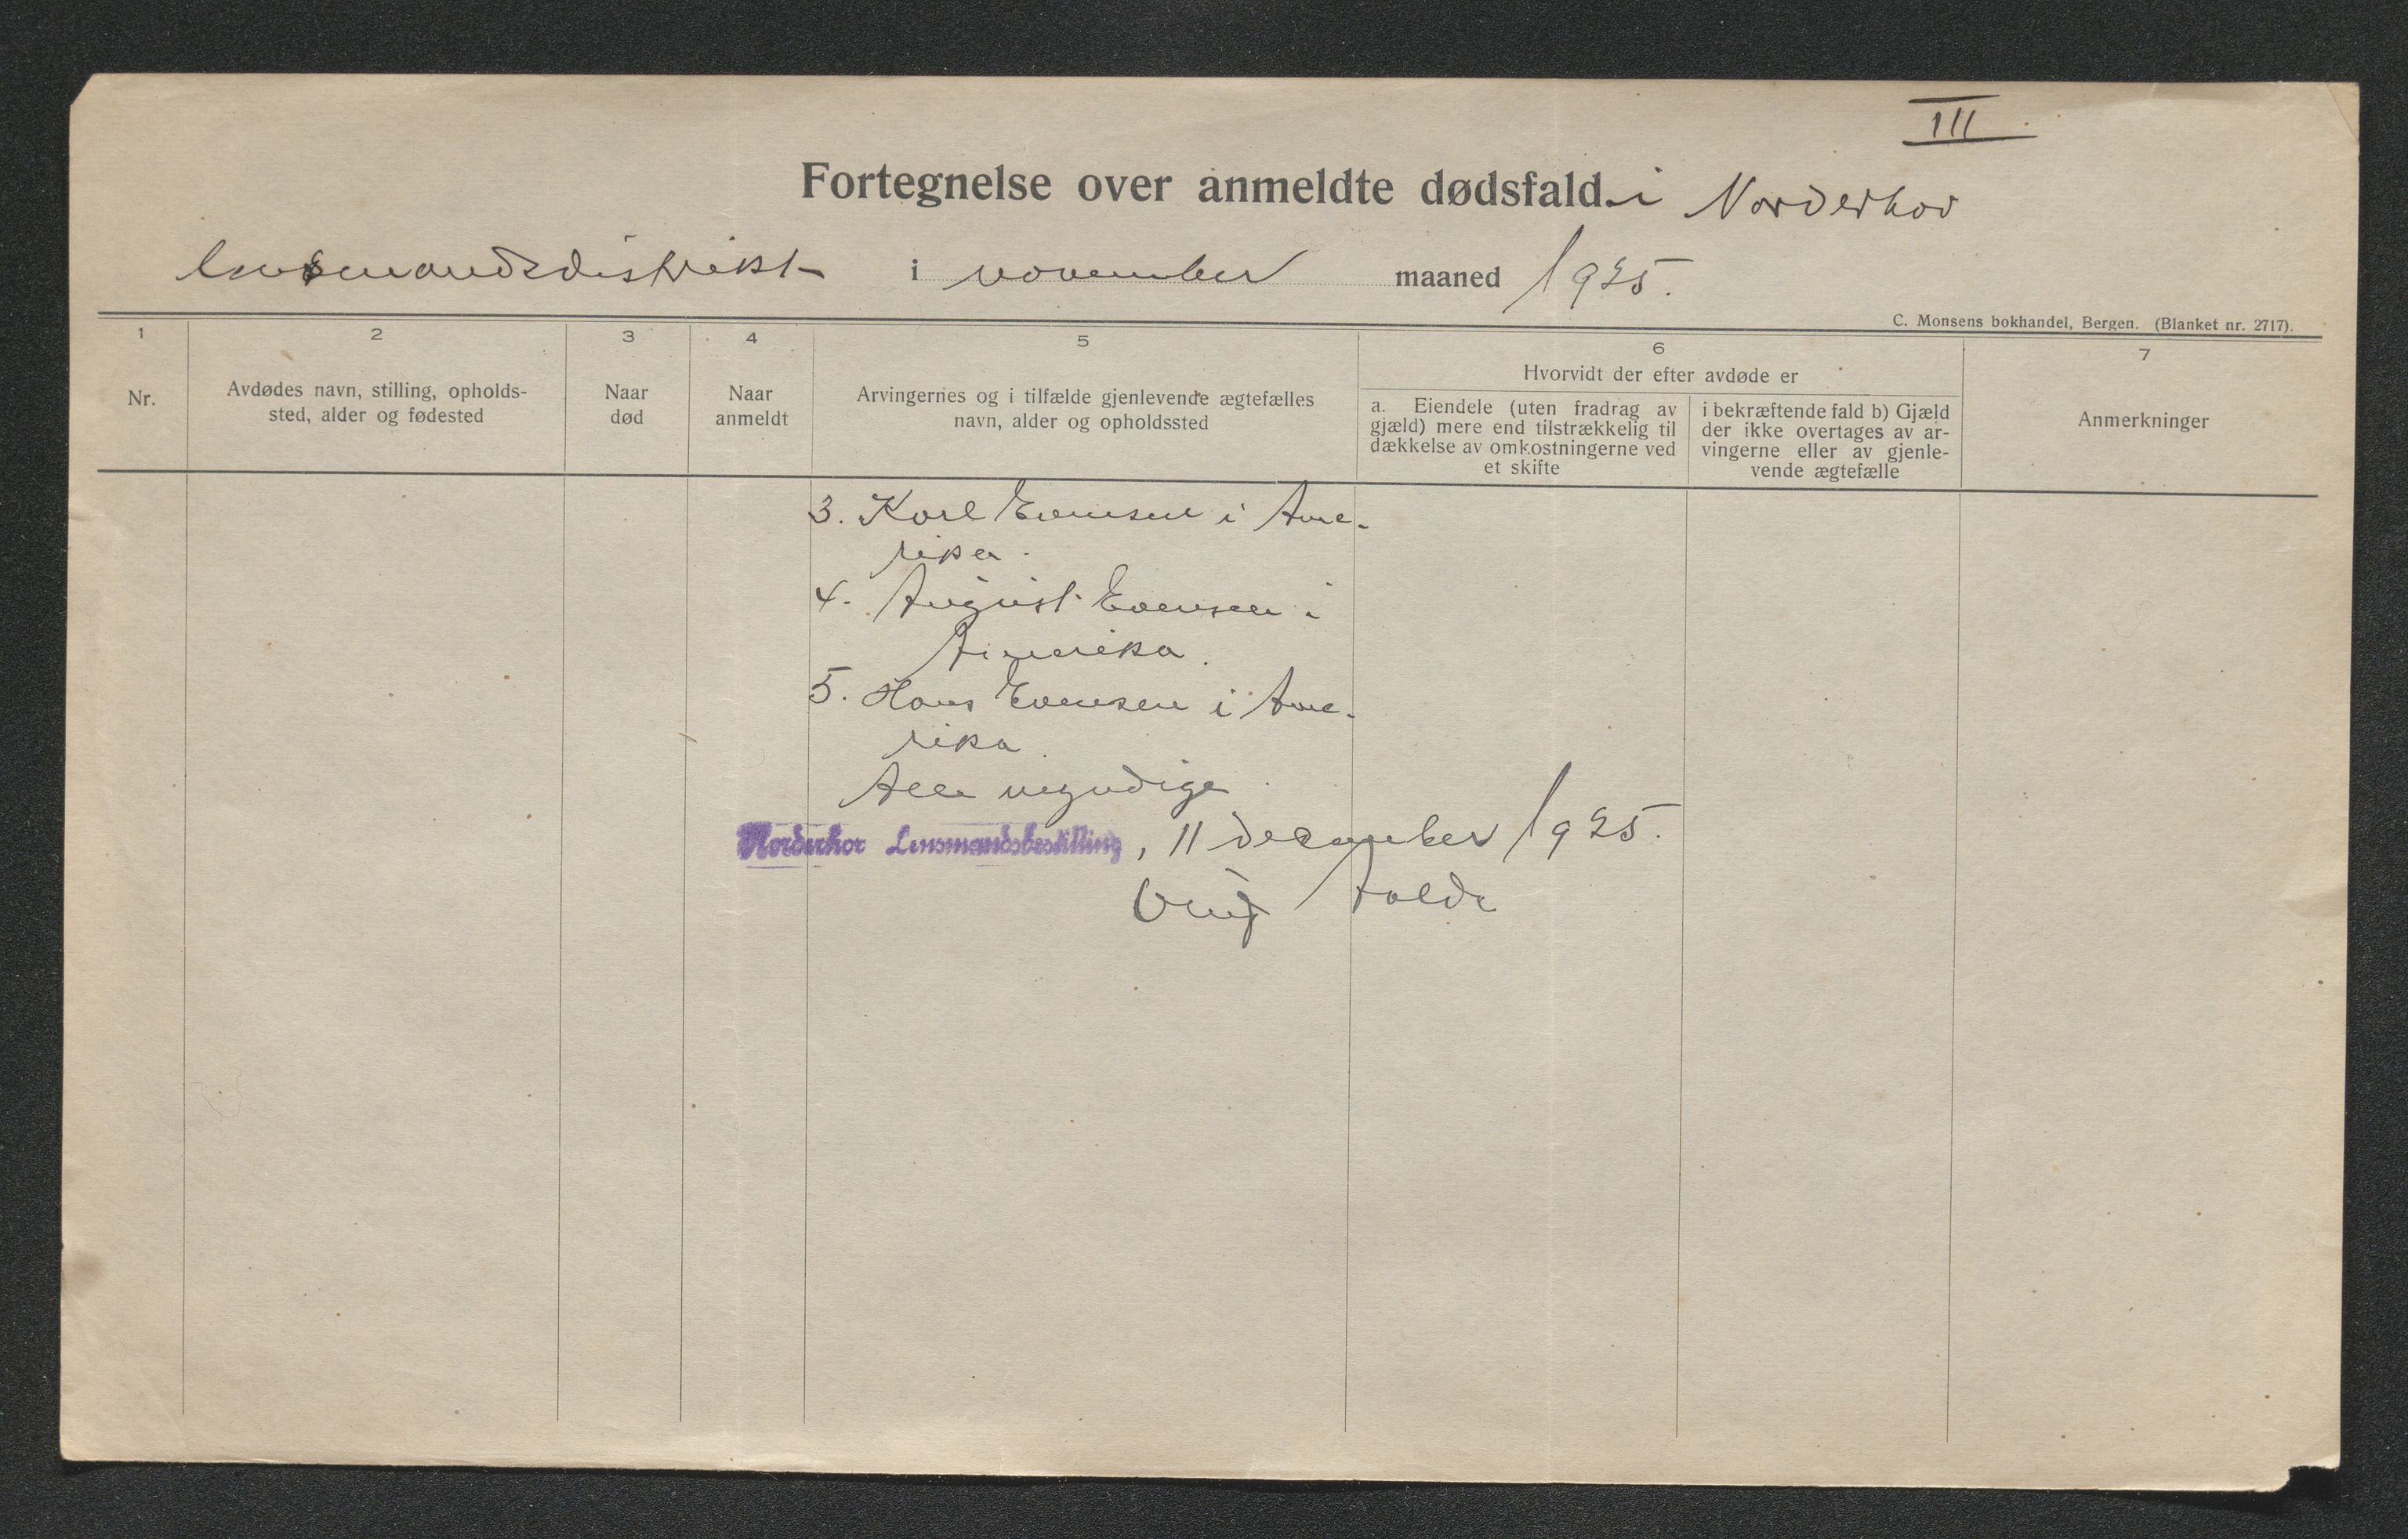 III
Fortegnelse over anmeldte dødsfald i Norderhov
lensmandsdistrikt i november maaned 1925.
C. Monsens bokhandel, Bergen. (Blanket nr. 2717).
1 2 3 4 5 6 7
Nr.
Avdødes navn, stilling, opholds-
sted, alder og fødested
Naar
død
Naar
anmeldt
Arvingernes og i tilfælde gjenlevende ægtefælles
navn, alder og opholdssted
Hvorvidt der efter avdøde er
a. Eiendele (uten fradrag av
gjæld) mere end tilstrækkelig til
dækkelse av omkostningerne ved
et skifte
i bekræftende fald b) Gjæld
der ikke overtages av ar-
vingerne eller av gjenle-
vende ægtefælle
Anmerkninger
3. Karl Evensen i Ame-
rika.
4. August Evensen i
Amerika.
5. Hans Evensen i Ame-
rika.
Alle myndige.
Norderhov Lensmandsbestilling, 11 december 1925.